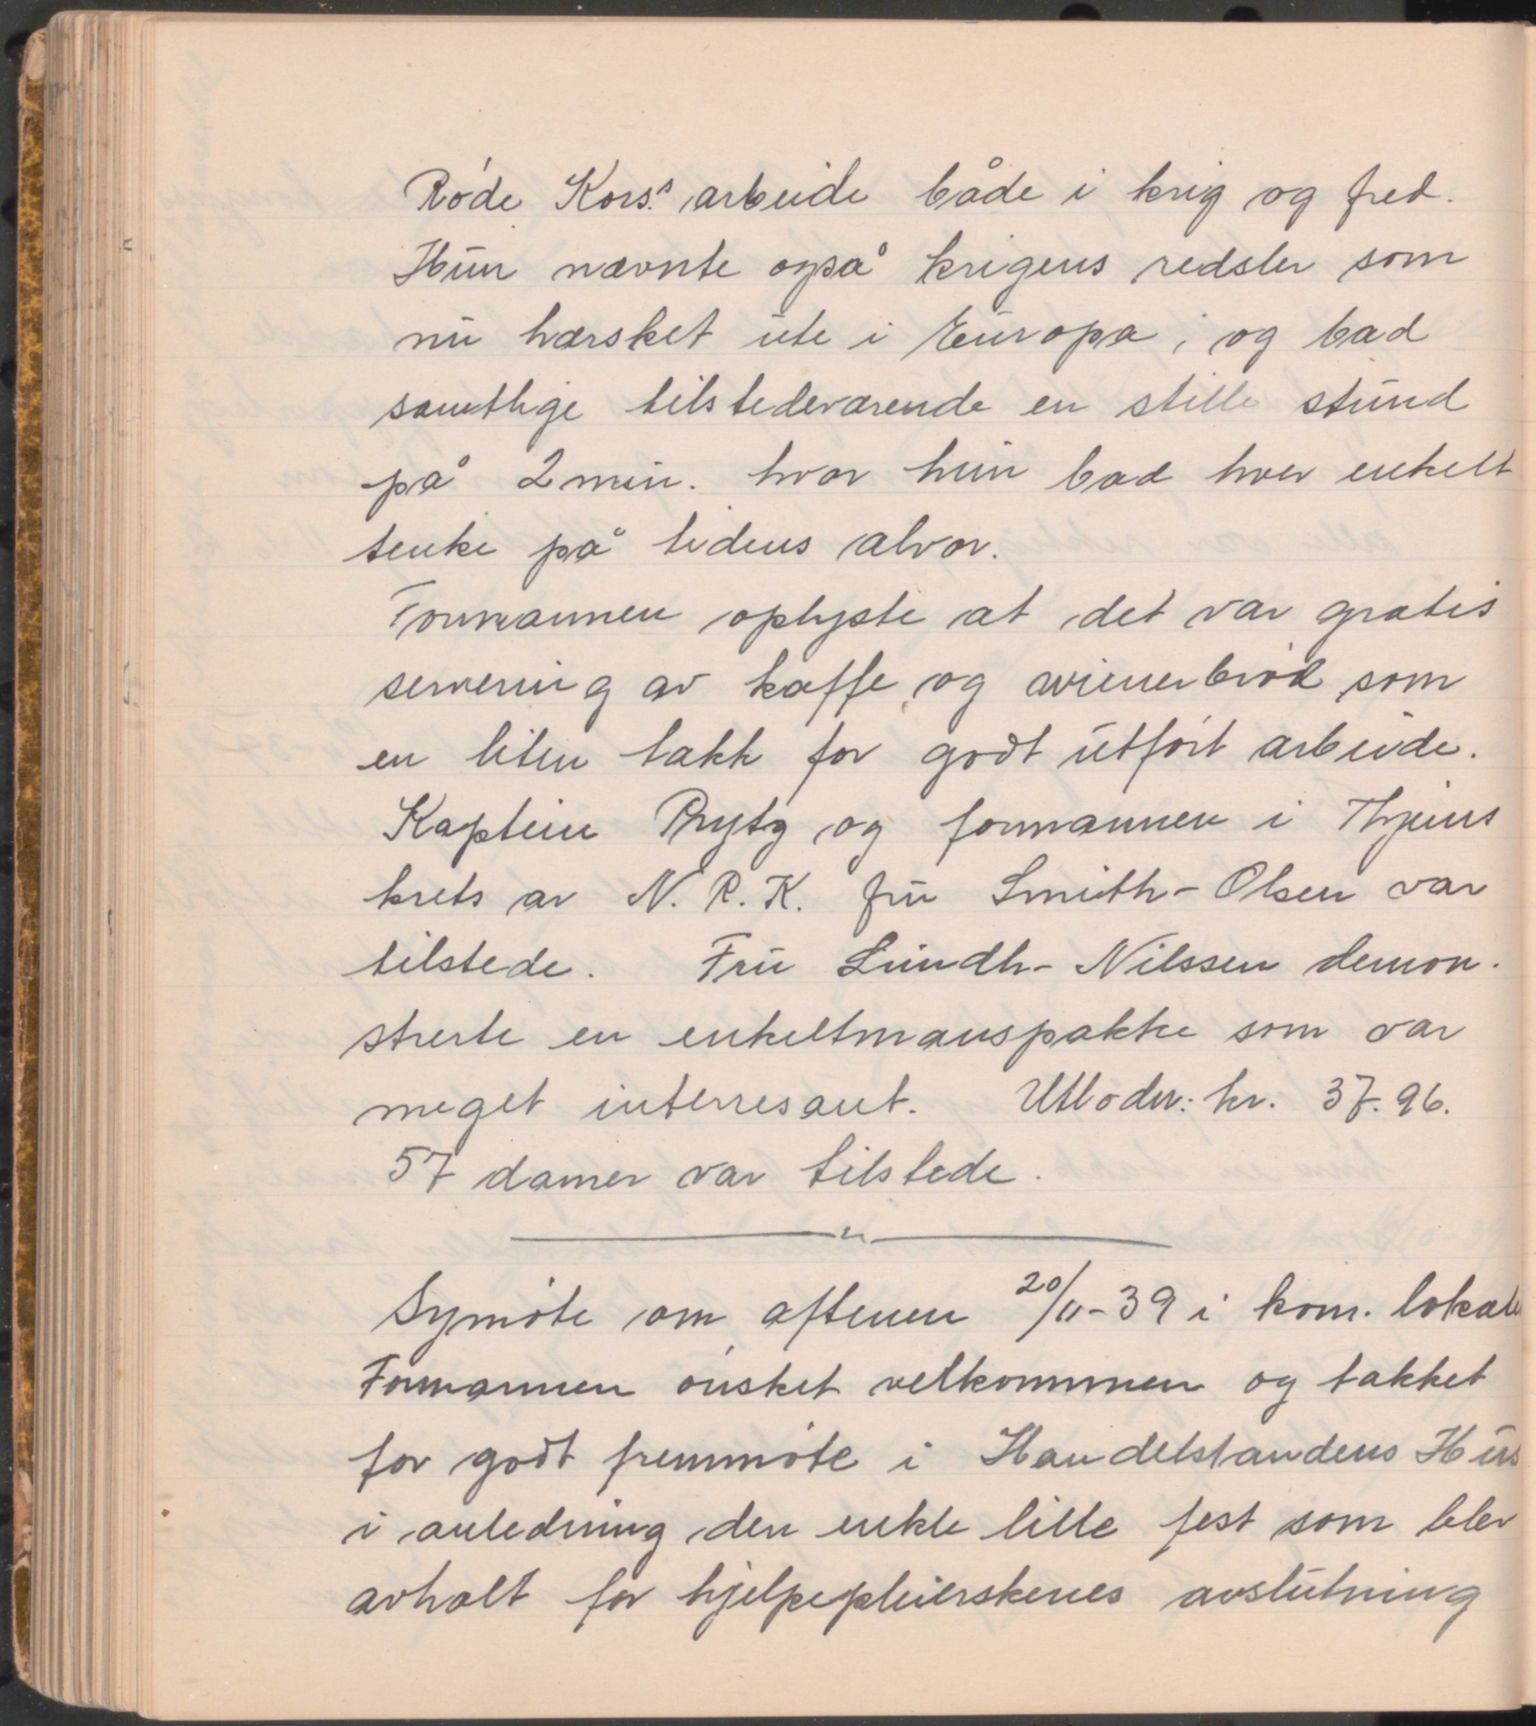 Røde Kors's arbeide både i krig og fred.
Hun nævnte også krigens redsler som
nu hærsket ute i Europa, og bad
samtlige tilstedeværende en stille stund
på 2 min. hvor hun bad hver enkelt
tenke på tidens alvor.
Formannen oplyste at det var gratis
servering av kaffe og wienerbrød som
en liten takk for godt utført arbeide.
Kaptein Prytz og formannen i
krets av N. R. K. fru Smith-Olsen var
tilstede. Fru Lundh-Nilssen demon-
strerte en enkeltmanspakke som var
meget interresant. Utlodn: kr. 37.96.
57 damer var tilstede.
Symøte om aftenen 20/11-39 i kom. lokale
Formannen ønsket velkommen og takket
for godt fremmøte i Handelstandens Hus
i anledning den enkle lille fest som blev
avholt for hjelpepleierskenes avslutning